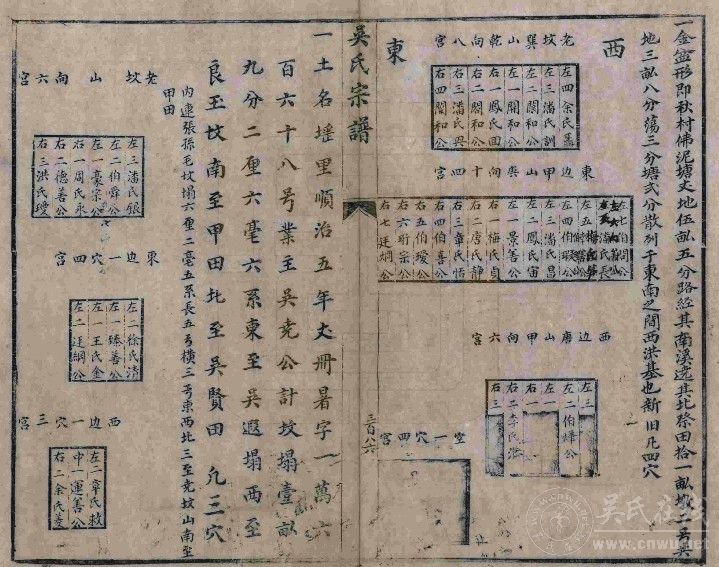 一金盆形即秋村佛泥塘丈地伍畝五分路經其南溪遶其北祭田拾一畝
地三畝八分蕩三分塘弍分散列于東南之間西洪基也新旧凡四穴
西
東
老坟巽山乾向八宮
左三潘氏訓
左二閏和公
左一開和公
右一鳳氏回
右二閏和公
右三潘氏與
右四閏和公
東边甲山庚向十四宮
左七伯閏公
左四伯瑕公
左三潘氏昌
左二鳳氏宙
左一景善公
右一梅氏貞
右二唐氏静
右三章氏恬
右四伯喜公
右五伯瑷公
右六珩宗公
右七廷綱公
西边唐山甲向六宮
左三
左二伯燁公
左一
右一
右二李氏浩
右三
空一穴四宮
吳氏宗譜
三百八六
一土名塩里順治五年丈冊暑字一萬六
百六十八号業主吳尭公計坟塌壹畝
九分二厘六毫六系東至吳遐塌西至
良玉坟南至甲田北至吳賢田 凡三穴
内連張孫毛坟塌六厘二毫五系長五弓橫三弓東西北三至尭坟山南至
甲田
老坟山向六宮
左三潘氏猿
左二伯舜公
左一豪宗公
右一周氏永
右二德善公
右三洪氏瓊
東边一穴四宮
左二徐氏清
左一臻善公
左一王氏金
左二廷綱公
西边一穴三宮
左二章氏救
中一運善公
右二余氏菱
吴氏在线
www.cnwu.net